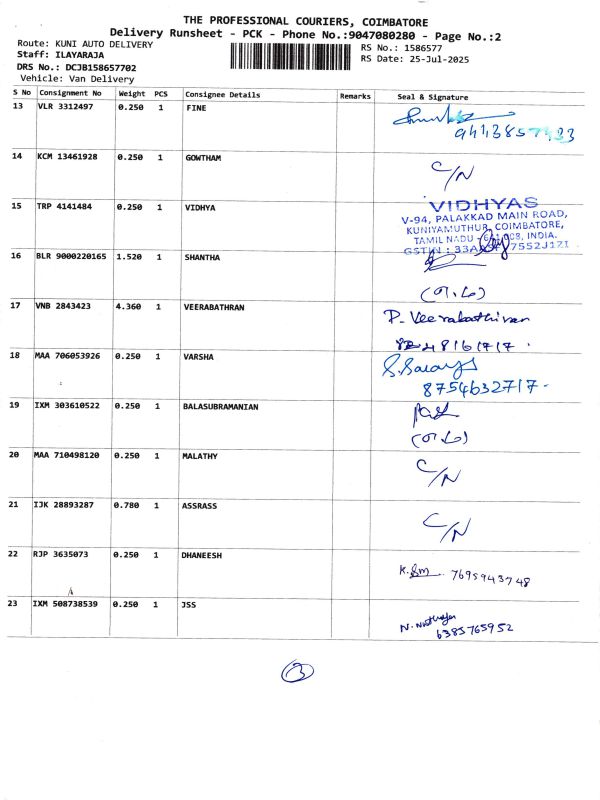 THE PROFESSIONAL COURIERS, COIMBATORE
Delivery Runsheet - PCK - Phone No.:9047080280 - Page No.:2
Route: KUNI AUTO DELIVERY
RS No.: 1586577
Staff: ILAYARAJA
RS Date: 25-Jul-2025
DRS No.: DCJB158657702
Vehicle: Van Delivery
S No Consignment No Weight PCS Consignee Details Remarks Seal & Signature
13 VLR 3312497 0.250 1 FINE
14 KCM 13461928 0.250 1 GOWTHAM C/N
15 TRP 4141484 0.250 1 VIDHYA
VIDHYAS
V-94, PALAKKAD MAIN ROAD,
KUNIYAMUTHUR, COIMBATORE,
TAMIL NADU INDIA.
GSTIN :
16 BLR 9000220165 1.520 1 SHANTHA
17 VNB 2843423 4.360 1 VEERABATHRAN P. Veerabathiran
18 MAA 706053926 0.250 1 VARSHA
8754632717.
19 IXM 303610522 0.250 1 BALASUBRAMANIAN
20 MAA 710498120 0.250 1 MALATHY C/N
21 IJK 28893287 0.780 1 ASSRASS C/N
22 RJP 3635073 0.250 1 DHANEESH 7695943748
23 IXM 508738539 0.250 1 JSS
6385765952
3